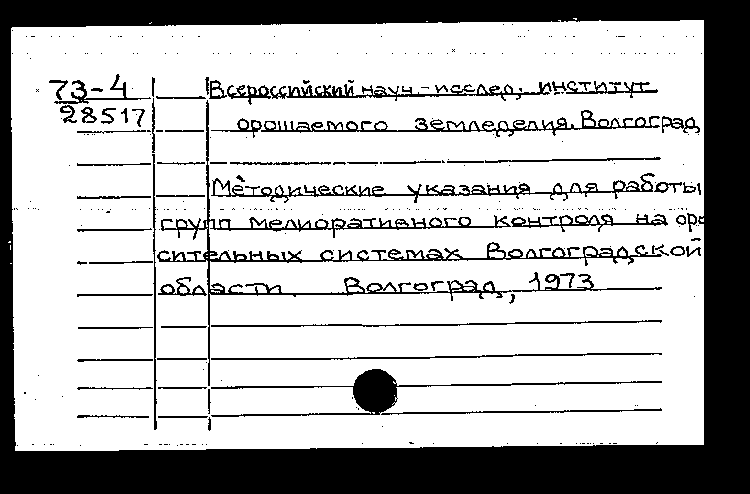 73-4
28517
Всероссийский науч-исслед, институт
орошаемого земледелия. Волгоград
Методические указания для работы
групп мелиоративного контроля на оро
сительных системах Волгоградской
области. Волгоград, 1973